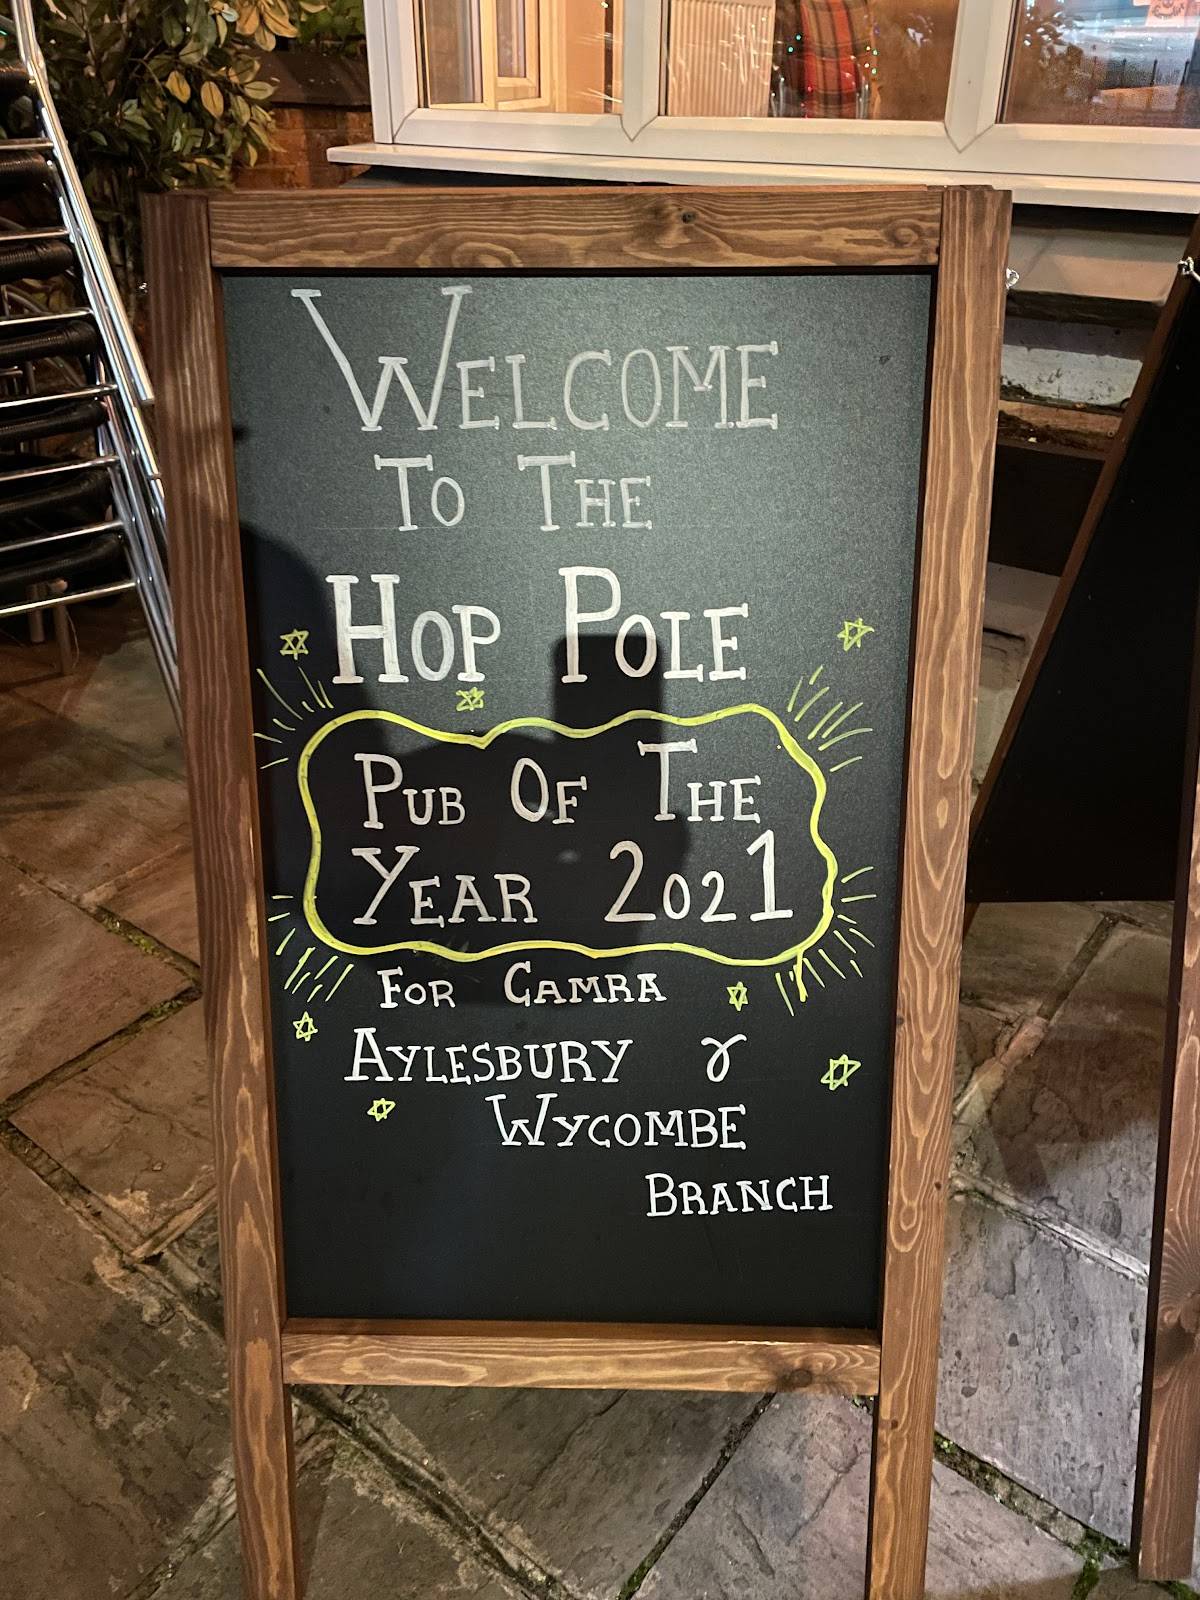 WELCOME
TO THE
HOP POLE
PUB OF THE
YEAR 2021
FOR CAMRA
AYLESBURY &
WYCOMBE
BRANCH